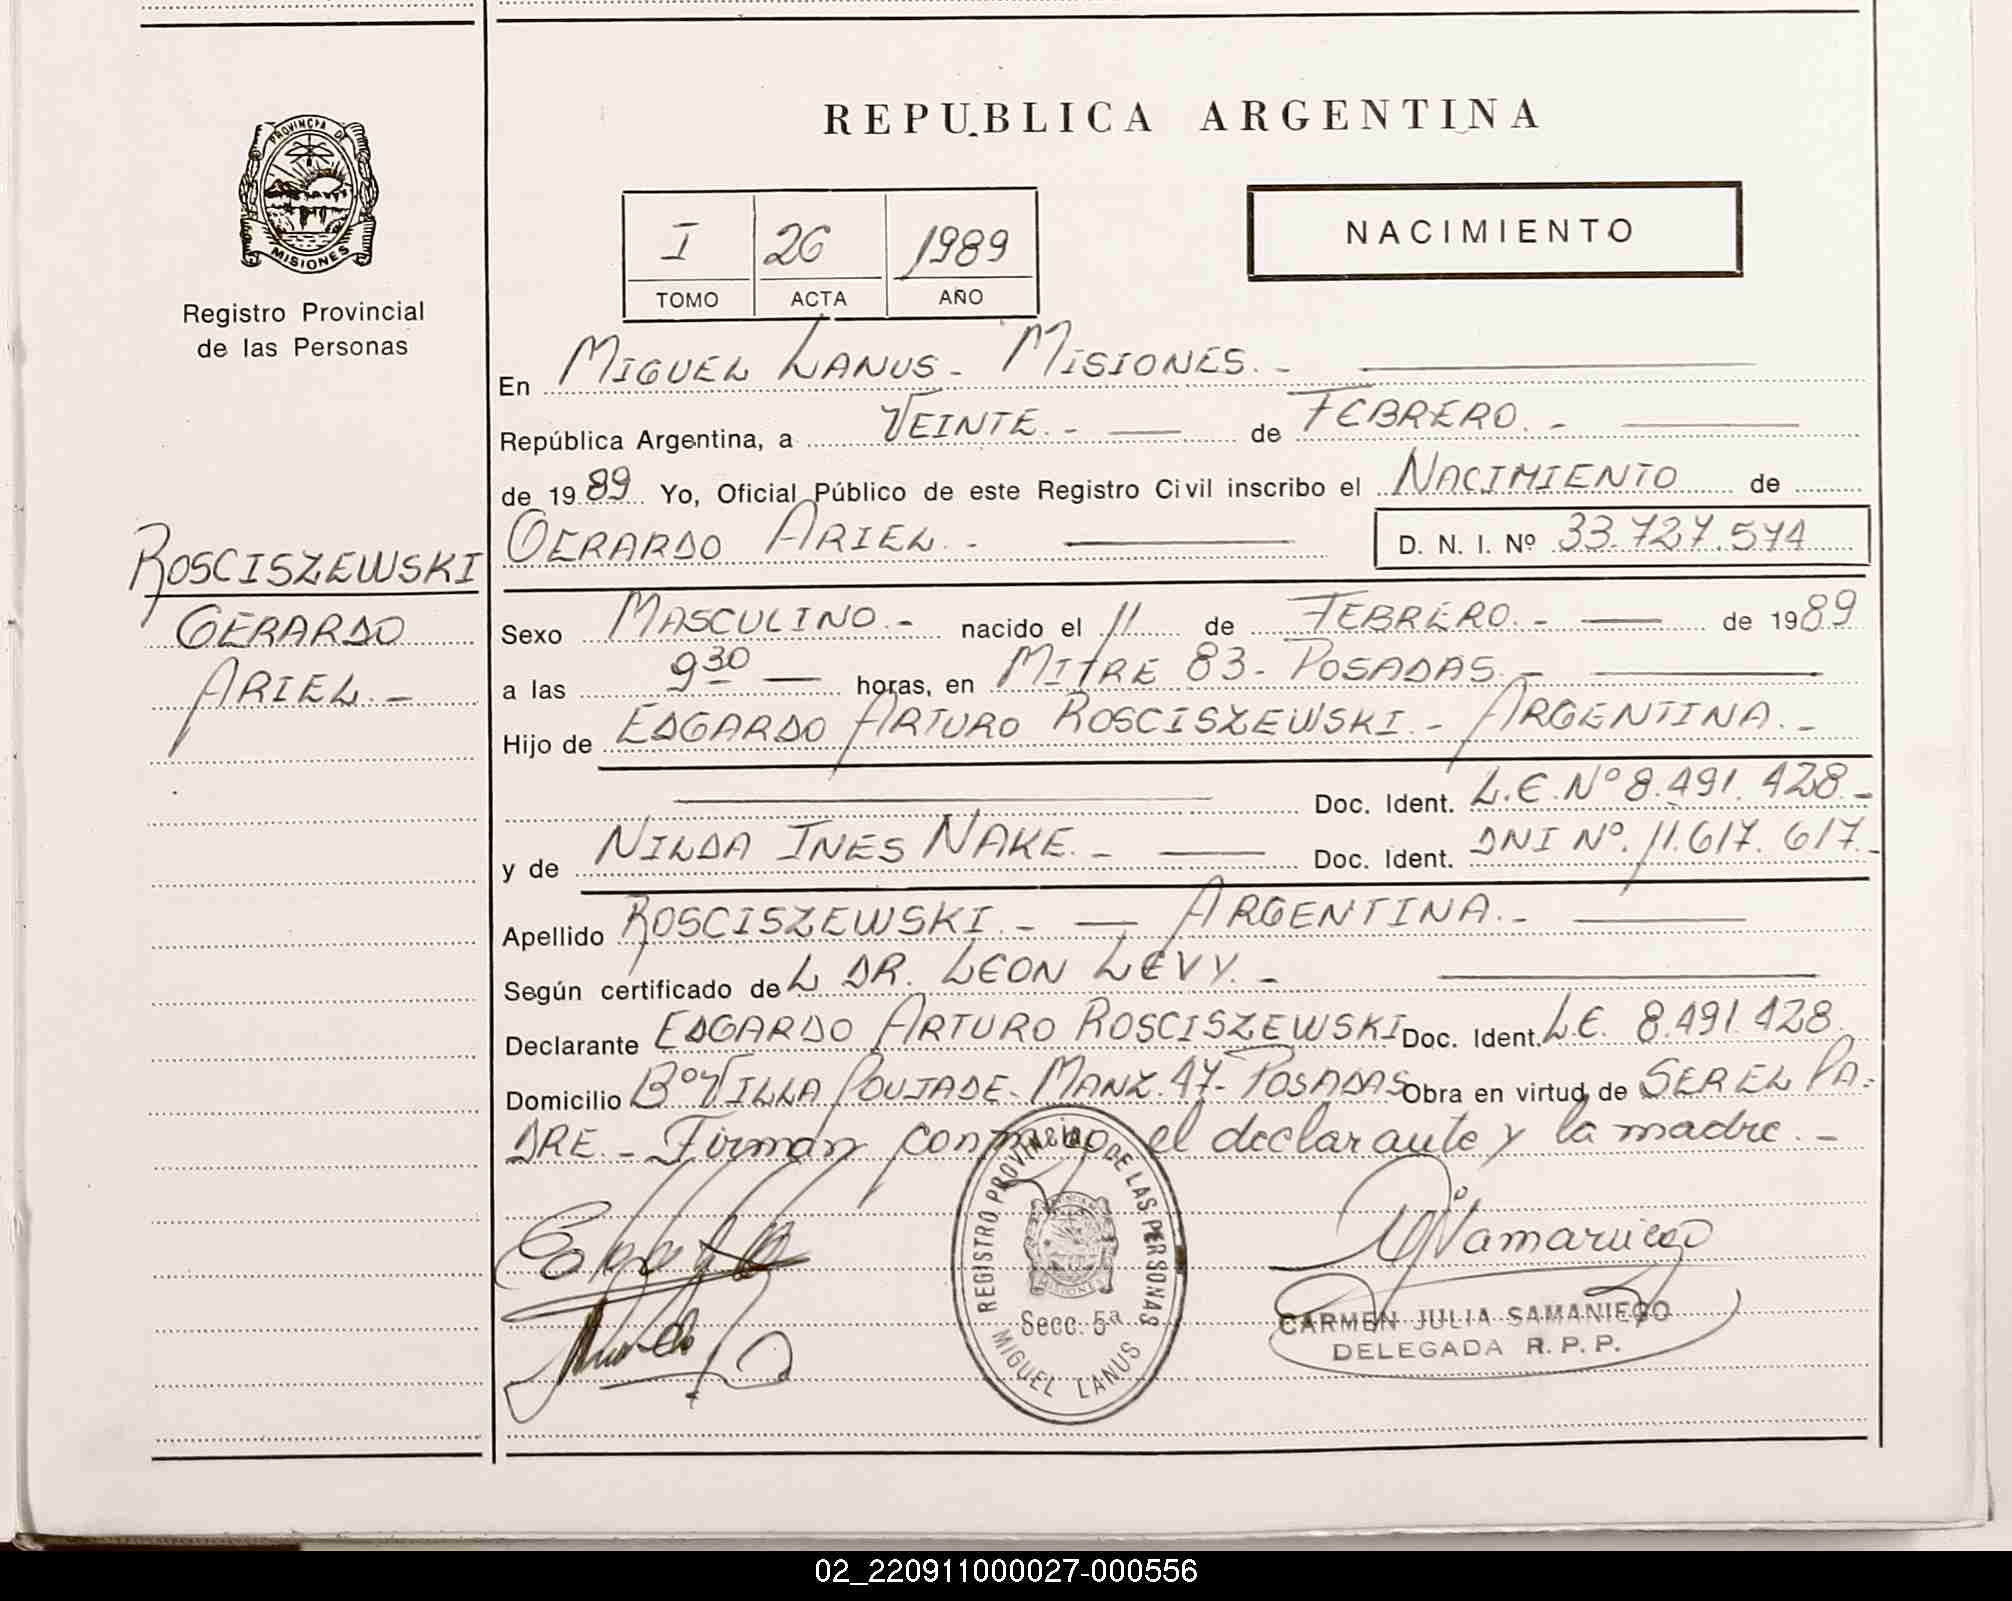 PROVINCIA DE
MISIONES
Registro Provincial
de las Personas
ROSCISZEWSKI
GERARDO
ARIEL.-
REPUBLICA ARGENTINA
I 26 1989
TOMO ACTA AÑO
NACIMIENTO
En MIGUEL LANUS - MISIONES.-
República Argentina, a VEINTE.- de FEBRERO.-
de 1989 Yo, Oficial Público de este Registro Civil inscribo el NACIMIENTO de
GERARDO ARIEL.- D. N. I. Nº 33.727.574
Sexo MASCULINO.- nacido el 11 de FEBRERO.- de 1989
a las 9 30 horas, en MITRE 83- POSADAS.-
Hijo de EDGARDO ARTURO ROSCISZEWSKI.- ARGENTINA.-
Doc. Ident. L.E. Nº 8.491.428.-
y de NILDA INES NAKE.- Doc. Ident. DNI Nº. 11.617.617.-
Apellido ROSCISZEWSKI.- ARGENTINA.-
Según certificado de L DR. LEON LEVY.-
Declarante EDGARDO ARTURO ROSCISZEWSKI Doc. Ident. L.E. 8.491.428
Domicilio Bº VILLA POUJADE- MANZ. 47- POSADAS Obra en virtud de SER EL PA-
DRE.- Firman conmigo el declarante y la madre.-
REGISTRO PROVINCIAL DE LAS PERSONAS
MISIONES
Secc. 5ª
MIGUEL LANUS
CARMEN JULIA SAMANIEGO
DELEGADA R. P. P.
02_220911000027-000556